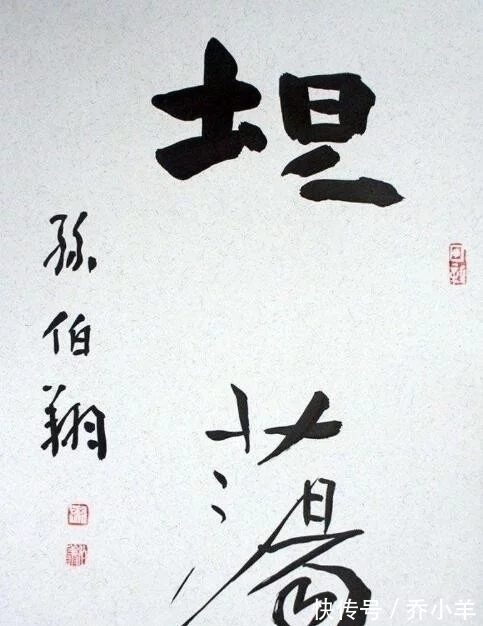 坦
蕩
孫伯翔
快传号/乔小羊